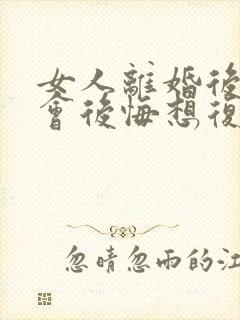 女人離婚後
會後悔想復
忽晴忽雨的江